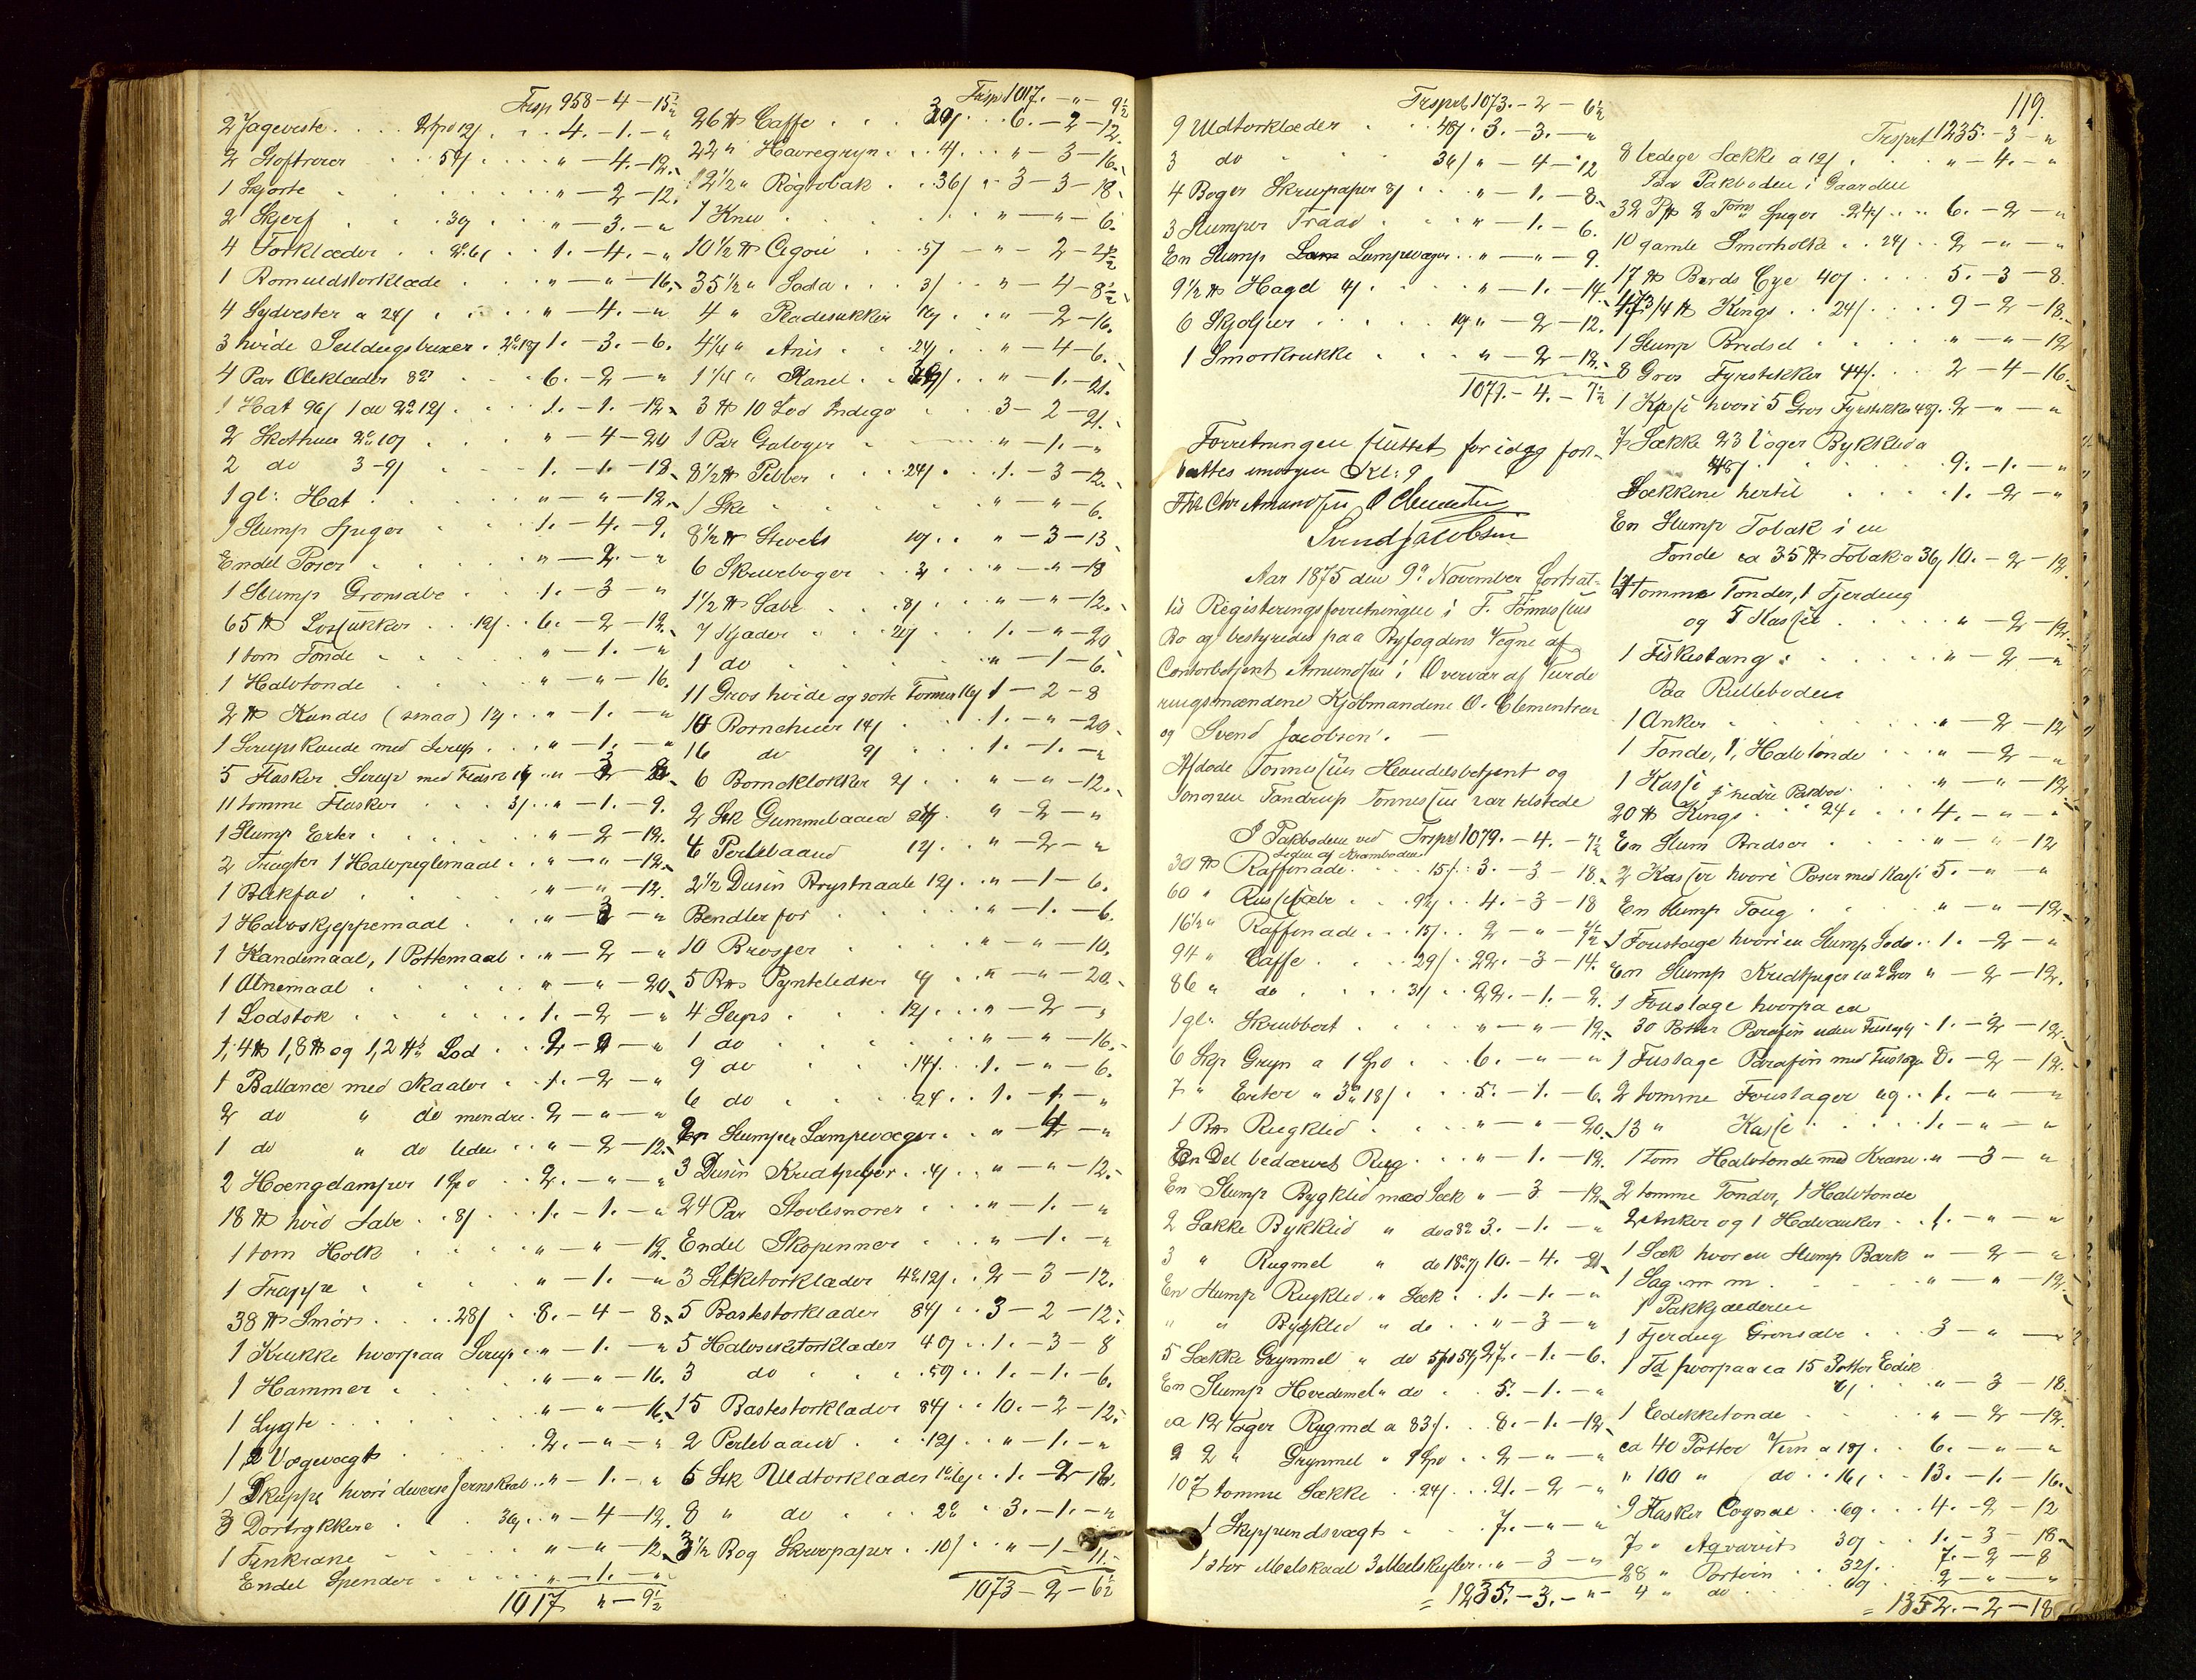 Trsp 958 - 4 - 15½
2 Jageveste . . . 2 Spd 12/ . . 4. - 1. - "
2 Stoftrøier . . 54/ . . . " - 4. - 12.
1 Skjorte . . . " - 2 - 12.
2 Skjerf . . . 39 . . " - 3. - "
4 Forklæder . . 2o 6/ . . 1. - 4. - "
1 Bomuldstørklæde . . . " - " - 16.
4 Sydvester a 24/ . . . " - 4. - "
3 hvide Seildugsbuxer . 2o 18/ 1. - 3. - 6.
4 Par Olieklæder 8o . . 6. - 2 - "
1 Hat 96/ 1 do 2o 12/ . . 1. - 1. - 12.
2 Skothuer 2o 10/ . . . " - 4 - 20
2 do 3 - 9/ . . . 1. - 1. - 18.
1 gl: Hat . . . " - " - 12.
1 Slump Spiger . . . 1. - 4. - 9.
Endel Poser . . . " - 2. - "
1 Slump Grønsæbe . . 1. - 3 - "
65 ℔ Lossukker . . 12/ . . 6. - 2 - 12.
1 tom Tønde . . . " - 1. - "
1 Halvtønde . . . " - " - 16.
2 ℔ Kandis (smaa) 12/ . . " - 1. - "
1 Sirupskande med Sirup . . . " - 1. - "
5 Flasker Sirup med Flaske
11 tomme Flasker . . 3/ . . " - 1. - 9.
1 Slump Erter . . . " - 2 - 12.
2 Tragter 1 Halvpæglemaal . . " - " - 12.
1 Blikfad . . . " - " - 12.
1 Halvskjeppemaal . . .
1 Kandemaal, 1 Pottemaal . . " - 2 - "
1 Alnemaal . . . " - " - 20.
1 Lodstok . . . 1. - 2 - "
1, 4 ℔ 1, 8 ℔ og 1, 2 ℔ Lod . . 2 - 2 - "
1 Ballance med Skaaler . . 1. - 2 - "
2 do " do mindre . 2 - " - "
1 do " do liden . . " - 2 - 12.
2 Hængelamper 1 Spd . . 2. - " - "
18 ℔ hvid Sæbe . . 8/ . . 1. - 1. - "
1 tom Holk . . . " - " - 12.
1 Trappe . . . " - 1. - "
38 ℔ Smør . . . 28/ . . 8. - 4 - 8.
1 Krukke hvorpaa Sirup . . " - 1. - "
1 Hammer . . . " - " - 16.
1 Lygte . . . " - " - 16.
1 Vogevægt . . . 2. - " - "
1 Skuppe hvori diverse Jernskrab . . " - 1. - "
3 Dørtrykkere . . . 36/ . . " - 4 - 12.
1 Tinkrane . . . " - " - 12.
Endel Spender . . . " - 1. - "
1017 " - 9½
Trsp 1017. - " - 9½
26 ℔ Caffe . . . 6. - 2 - 12.
22 " Havregryn . . 4/ . . " - 3 - 16.
12½ " Røgtobak . . 36/ . . 3 - 3 - 18.
1 Kniv . . . " - " - 6.
10½ ℔ Cigori . . 5/ . . " - 2 - 4½
35½ " Soda . . . 3/ . . " - 4 - 8½
4 " Pladesukker 16/ . . " - 2 - 16.
4¼ " Anis . . . 24/ . . " - 4 - 6.
1¼ " Kanel . . " - 1. - 21.
3 ℔ 10 Lod Indigo . . 3 - 2 - 21.
1 Par Galoger . . " - 1. - "
8½ ℔ Pebber . . . 24/ . . 1. - 3 - 12.
1 Ske . . . " - " - 6.
8½ ℔ Stivels 10/ . . " - 3 - 13.
6 Skrivebøger . . 3/ . . " - " - 18
1½ ℔ Sæbe . . . 8/ . . " - " - 12.
7 Kjæder . . . 20/ . . 1. - " - 20
1 do . . . " - 1 - 6.
11 Gros hvide og sorte 16/ 1 - 2 - 8
10 Børnehuer 14/ . . . 1. - " - 20.
16 do 9/ . . . 1. - 1. - "
6 Børneklokker 2/ . . " - " - 12.
2 Stk Gummebaand 24/ . " - 2 - "
4 Perlebaand 12/ . . " - 2 - "
2½ Dusin Brystnaale 12/ . . " - 1 - 6.
Bendler for . . . " - 1. - 6.
10 Brosjer . . . " - " - 10.
5 Bts Pynteledser 4/ . . " - " - 20.
4 Slips . . . 12/ . . " - 2 - "
1 do . . . " - " - 16.
9 do . . . 14/ . . 1. - " - 6.
6 do . . . 24 . . 1. - 1. - "
2 Slumper Lampevæger . . " - 4 - "
3 Dusin Kridtpiber . . 4/ . . " - " - 12.
24 Par Støvlesnorer . . . " - 1. - "
Endel Skopinner . . . " - 1. - "
3 Silketørklæder 4o 12/ . . 2 - 3 - 12.
5 Bastestørklæder 84/ . . 3 - 2 - 12.
5 Halvsilketørklæder 40 . . 1. - 3 - 8
3 do . . . 50 . . 1. - 1. - 6.
15 Bastestørklæder 84/ . . 10. - 2 - 12.
2 Perlebaand . . . 12/ . . " - 1. - "
6 Stk Uldtørklæder 1o 16/ . . 1. - 2 - 12.
8 " do . . . 2o . . 3. - 1. - "
3½ Bog Skrivpapir . . 10/ . . " - 1 - 11.
1073 - 2 - 6½
Trsprt 1073. - 2 - 6½
9 Uldtørklæder . . 48/ . 3. - 3. - "
3 do . . . 36/ " - 4 - 12
4 Bøger Skrivpapir 8/ . . . " - 1. - 8.
3 Slumper Traad . . . " - 1. - 6.
En Slump Lampevæger . . " - " - 9.
9½ ℔ Hagel 4/ . . . " - 1. - 14.
6 Skjøljer . . . 10/ " - 2 - 12.
1 Smørkrukke . . . " - 2 - 12.
1077. - 4. - 7½
Forretningen sluttet for idag fort-
sættes imorgen Kl: 9
Fhv Chr Amundsen O Clementsen
Svend Jacobsen
Aar 1875 den 9de November fortsat-
tes Registeringsforretningen i F. Tønnessens
Bo og bestyredes paa Byfogdens Vegne af
Contorbetjent Amundsen i Overvær af Vurde
ringsmændene Kjøbmændene O. Clementsen
og Svend Jacobsen. —
Afdøde Tønnessens Handelsbetjent og
Sønnen Tandrup Tønnessen var tilstede
I Pakboden ved Trsprt 1079. - 4. - 7½
Siden af Kramboden
30 ℔ Raffinade . . . 15/ . . 3. - 3 - 18.
60 " Russesæbe . . . 9½/ . . 4. - 3 - 18
16½ " Raffinade . . . 15/ . . 2 - " - 7½
94 " Caffe . . . 29/ . 22. - 3 - 14.
86 " do . . . 31/ . . 22. - 1. - 2.
1 gl: Skrubbert . . . " - " - 12.
6 Skp Gryn a 1 Spd . . 6. - " - "
7 " Erter " 3o 18/ . . . 5. - 1. - 6.
1 Bts Rugklid . . . " - " - 20.
En Del bedærvet Rug . . . " - 1. - 12.
En Slump Bygklid med Sæk " - 3 - 12.
2 Sække Bykklid " do a 8o 3. - 1. - "
3 " Rugmel " do 18o 7/ 10. - 4. - 21.
En Slump Rugklid " Sæk . . 1. - 1. - "
" " Bygklid " do . . " - 3 - "
5 Sække Grynmel " do 5 Spd 54/ 27. - 1. - 6.
En Slump Hvedemel " do . . 5. - 1. - "
ca 12 Voger Rygmel a 83/ . . 8. - 1. - 12.
2 " Grynmel " 1 Spd . . 2 - " - "
107 tomme Sække . . 24/ . . 21. - 2 - "
1 Skippundsvægt . . . 7. - " - "
1 stor Melskaal 3 Melskufler . . " - 3 - "
= 1235. - 3. - "
119.
Trsprt 1235. - 3 - "
8 ledige Sække a 12/ . . . " - 4. - "
Paa Pakboden i Gaarden
32 P℔ 2 Toms Spiger . 24/ . . . 6. - 2 - "
10 gamle Smørholke . . 24/ . . 2 - " - "
17 ℔ Birds Eye 40/ . . . . 5. - 3 - 8.
47¾ ℔ Kings . . 24/ . . . 9 - 2 - 18.
1 Slump Bridsel . . . " - " - 12
8 Gros Fyrstikker 44/ . . 2 - 4 - 16.
1 Kasse hvori 5 Gros Fyrstikker 48/ . 2 - " - "
7 Sække 23 Voger Bykklid a
48/ . . . 9. - 1. - "
Sækkene hertil . . . 1. - 2 - "
En Slump Tobak i en
Tønde ca 35 ℔ Tobak a 36/ 10. - 2 - 12.
tomme Tønder, 1 Fjerding
og 5 Kasser . . . . . " - 2 - 12.
1 Fiskestang: . . . " - 2 - "
Paa Rulleboden
1 Anker . . . " - 2 - 12
1 Tønde, 1, Halvtønde . . . " - 2 - "
1 Kasse . . " - " - 12
i nedre Pakbod
20 ℔ Kings . . 24 . . . 4. - " - "
En Slum Bridser . . " - " - 12
2 Kasser hvori Poser med Kasse 5. - " - "
En Slump Toug . . . " - " - 12.
1 Foustage hvori en Slump Soda . . 1. - 2 - "
En Slump Kridtpiper ca 2 Gros " - 2 - 12.
1 Foustage hvorpa ca
30 Potter Parafin uden Fustage . 1. - 2 - 12.
1 Fustage Parafin med Fustage 8. - 2 - 12.
2 tomme Foustager og . . 1. - " - "
13 " Kasse . . . 1. - " - "
1 tom Halvtønde med Krane . " - 3 - "
2 tomme Tønder, 1 Halvtønde
2 Anker og 1 Halvanker . . 1. - " - "
1 Sæk hvor en Slump Bark " - 2 - "
1 Sag m m . . . " - " - 12.
I Pakkjælderen
1 Fjerding Grønsæbe . . 3 - " - "
1 Td hvorpaa ca 15 Potter Edik
6/ . . " - 3 - 18.
1 Edikketønde . . . " - 2 - 12.
ca 40 Potter Vin a 18/ . . 6. - " - "
" 100 " do . . 16/ . . 13. - 1. - 16.
9 Flasker Cognac . . 60 . . 4. - 2 - 12
7 " Aqvavit 30 . . 1. - 3 - 18.
28 " Portvin . . 32/ . . 7. - 2 - 8
4 " do . . . 60 . . 2 - " - "
= 1352. - 2 - 18